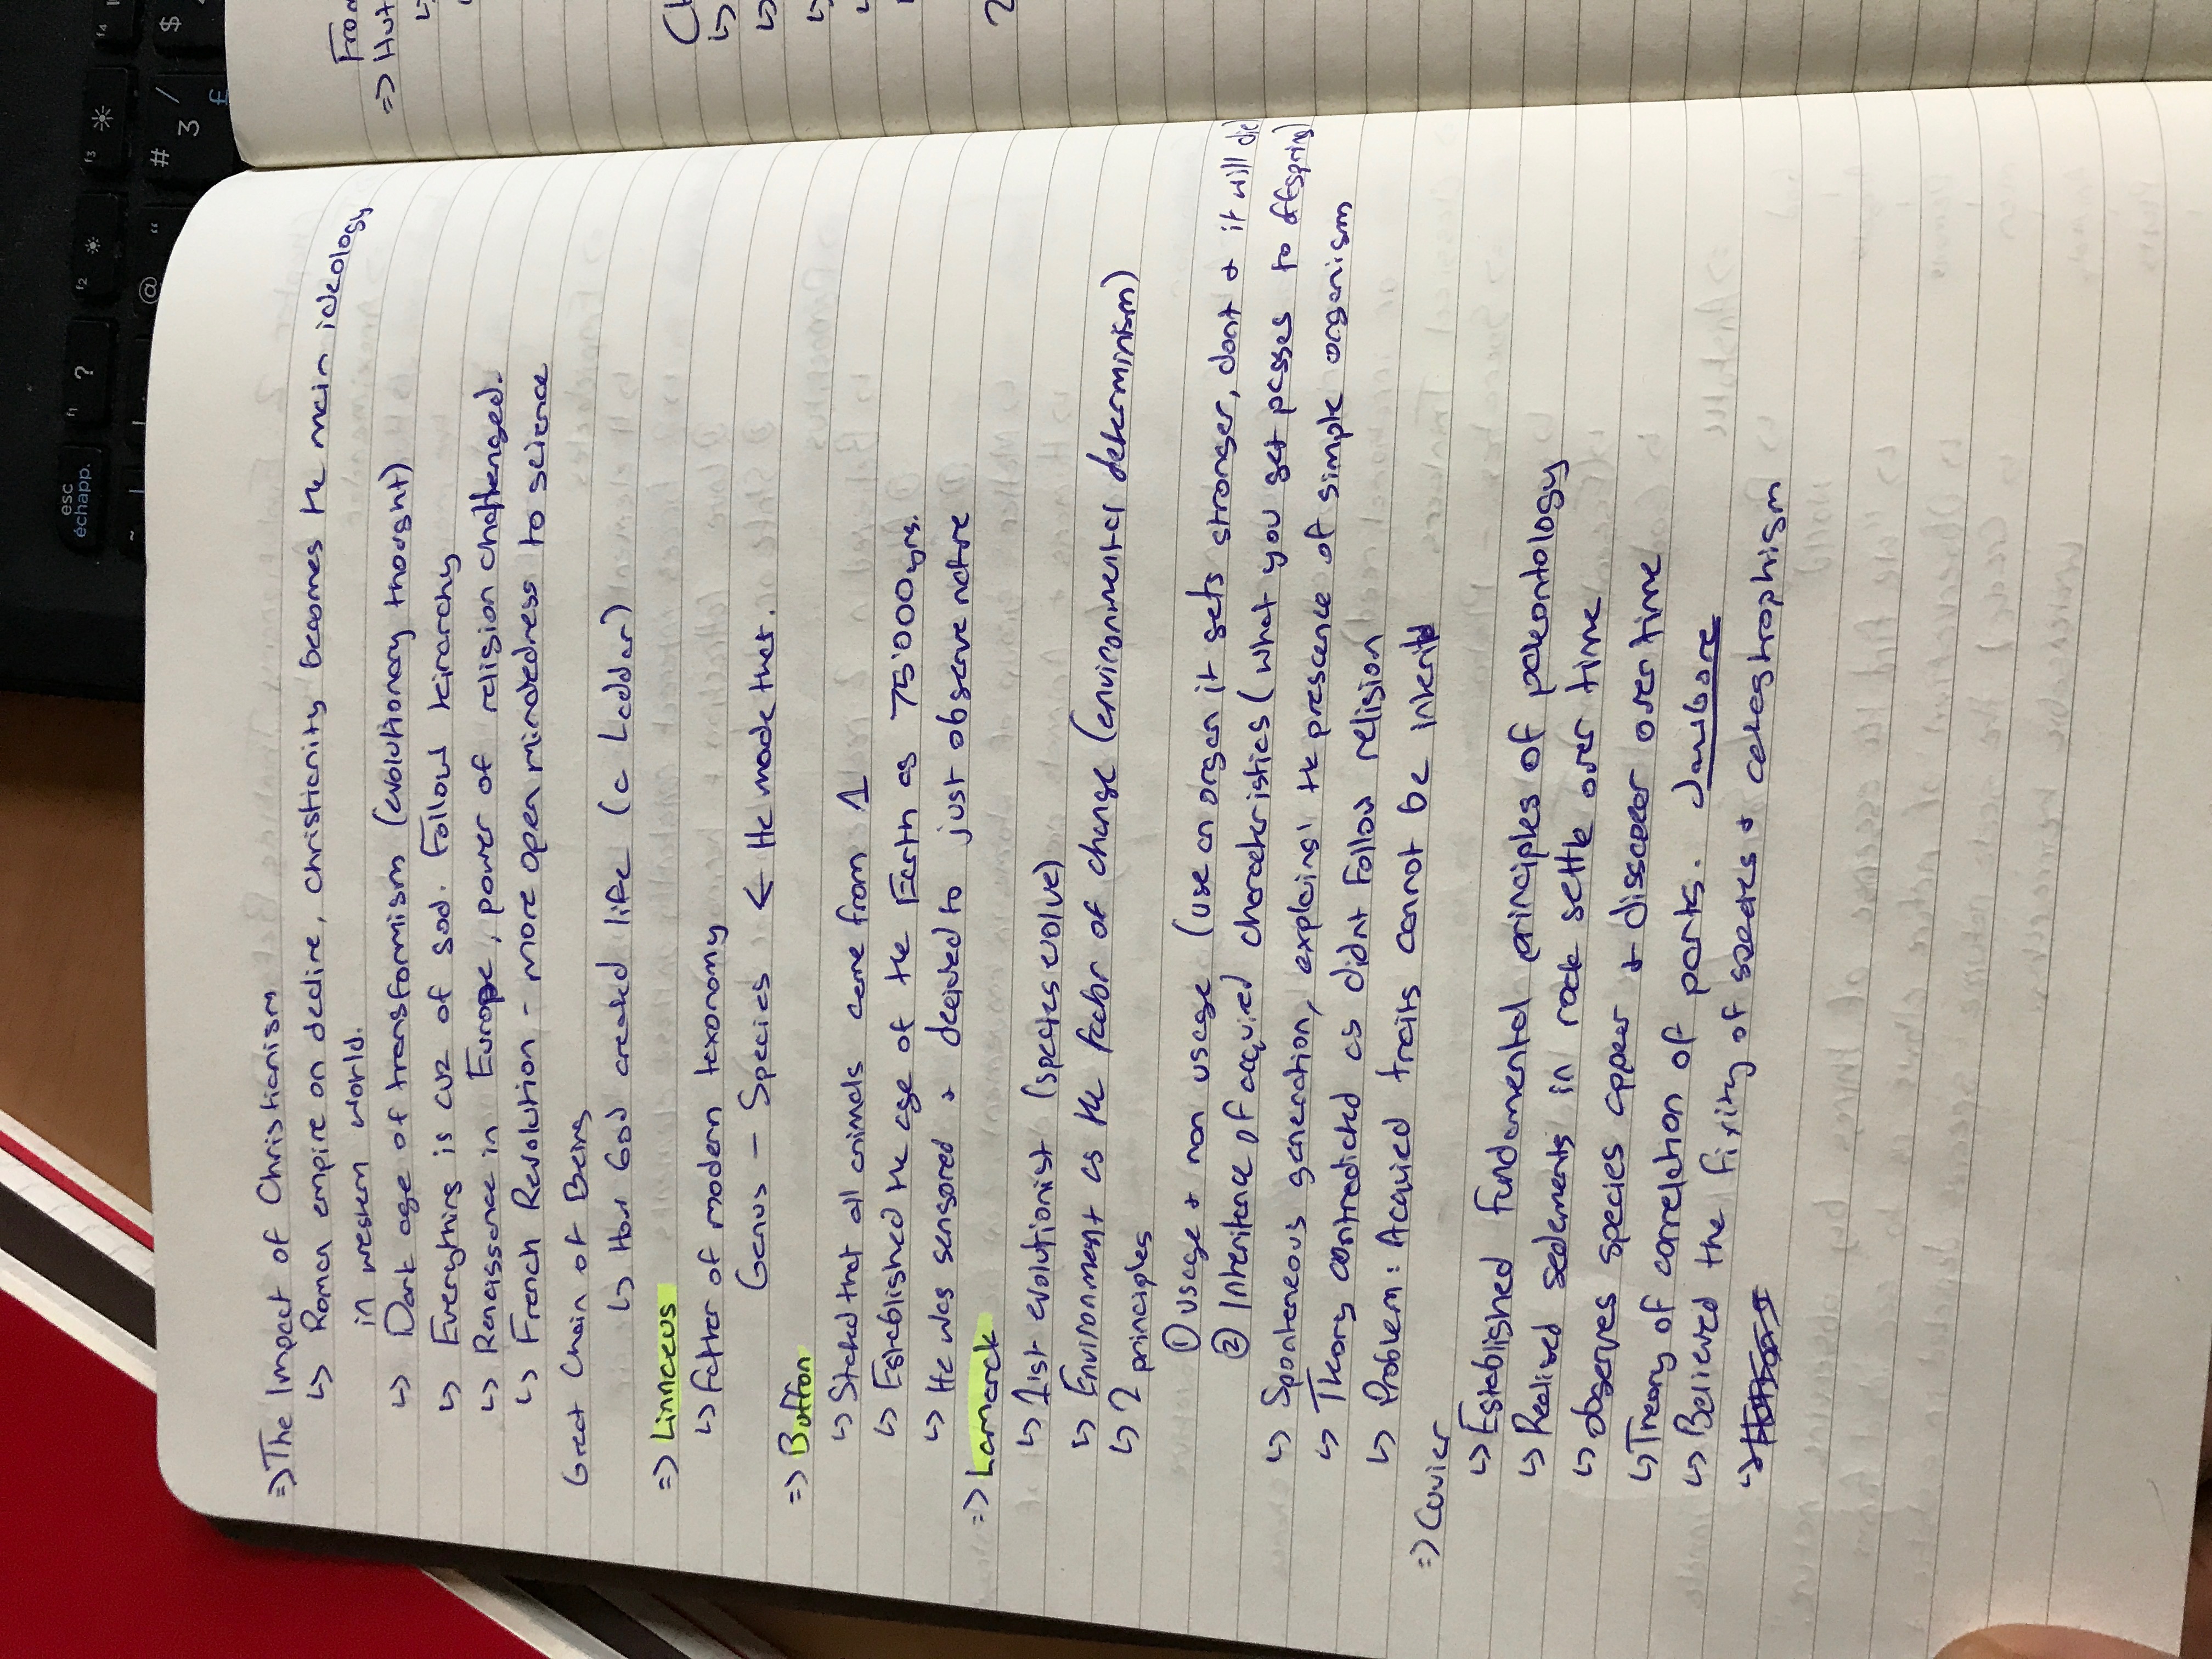 => The Impact of Christianism
↳ Roman empire on decline, christianity becomes the main ideology
in western world.
↳ Dark age of transformism (evolutionary thought)
↳ Everything is cuz of god. Follow hirarchy
↳ Renaissance in Europe, power of religion challenged.
↳ French Revolution - more open mindedness to science
Great Chain of Being
↳ How God created life (a Ladder)
=> Linnaeus
↳ Father of modern taxonomy
Genus - Species ← He made that.
=> Buffon
↳ Stated that all animals came from 1
↳ Established the age of the Earth as 75'000 yrs.
↳ He was sensored + decided to just observe nature
=> Lamarck
↳ 1st evolutionist (species evolve)
↳ Environment as the factor of change (environmental determinism)
↳ 2
principles
① usage + non usage (use an organ it gets stronger, dont + it will die)
② Inheritence of acquired characteristics (what you get passes to offspring)
↳ Spontaneous generation, explains the prescence of simple organism
↳ Theory contradicted as didnt follow religion
↳ Problem: Acquied traits cannot be inherited
=> Cuvier
↳ Established fundamental principles of paleontology
↳ Realised sediments in rock settle over time
↳ observes species appear + dissapear over time
↳ Theory of correlation of parts. Jawbone
↳ Believed the fixity of species + catastrophism
From
=> Hut
f1
f2
f3
f4
esc
échapp.
?
@
"
#
3
/
£
$
4
~